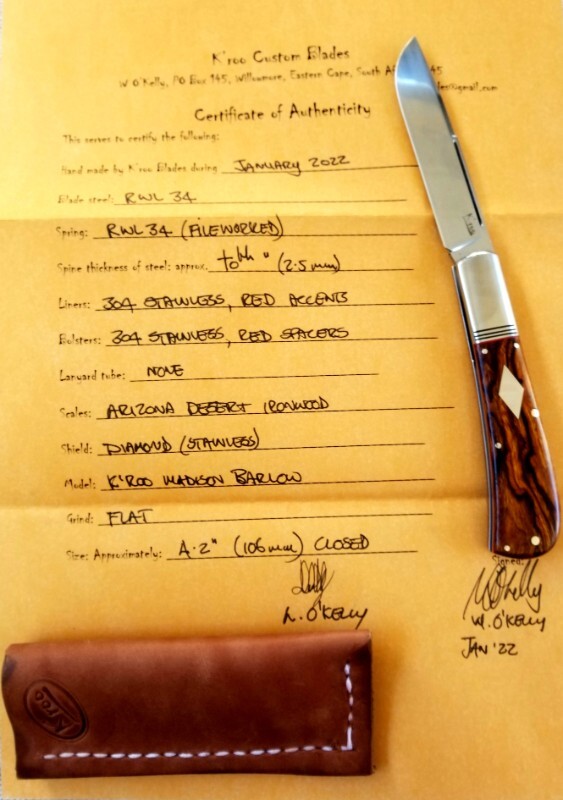 K'roo Custom Blades
W O'Kelly, PO Box 145, Willowmore, Eastern Cape, South 45
@gmail.com
Certificate of Authenticity
This serves to certify the following:
Hand made by K'roo Blades during JANUARY 2022
Blade steel: RWL 34
Spring: RWL 34 (FILEWORKED)
Spine thickness of steel: approx. 10th " (2.5mm)
Liners: 304 STAINLESS, RED ACCENTS
Bolsters: 304 STAINLESS, RED SPACERS
Lanyard tube: NONE
Scales: ARIZONA DESERT IRONWOOD
Shield: DIAMOND (STAINLESS)
Model: K'ROO MADISON BARLOW
Grind: FLAT
Size: Approximately: 4.2" (106mm) CLOSED
Signed:
L. O'KELLY
W. O'KELLY
JAN '22
K'roo
K'roo